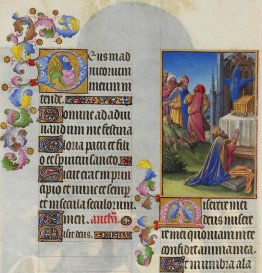 Deus in ad
iutorium
meum in
tende.
Domine ad adiu
uandum me festina
Gloria patri et fili
o et spiritui sancto.
Sicut erat in princi
pio et nunc et semp
et in secula seculorum
Amen.
Miserere
miserere mei
deus misere
re mei quoniam in te
confidit anima mea.
Et in umbra ala